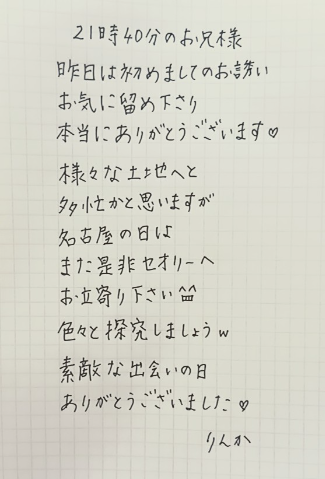 21時40分のお兄様
昨日は初めましてのお誘い
お気に留め下さり
本当にありがとうございます♡
様々な土地へと
多忙かと思いますが
名古屋の日は
また是非セオリーへ
お立寄り下さい^^
色々と探究しましょうw
素敵な出会いの日
ありがとうございました♡
りんか